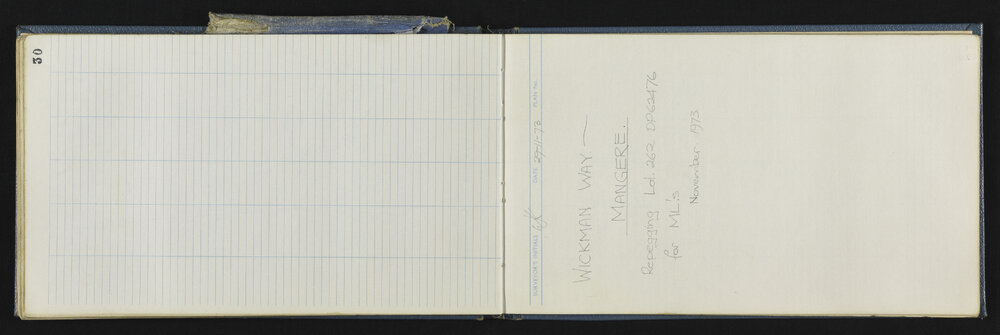 30
SURVEYOR'S INITIALS DATE 29-11-73 PLAN No.
WICKMAN WAY. —
MANGERE.
Repegging Lot. 262 DP62476
for ML's
November 1973